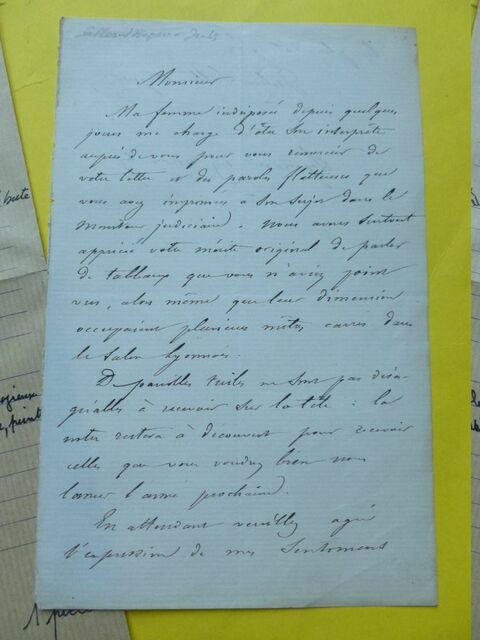 Monsieur
Ma femme indisposée depuis quelques
jours me charge d'être son interprète
auprès de vous pour vous remercier de
votre lettre et des paroles flatteuses que
vous avez imprimées à son sujet dans le
Moniteur judiciaire. Nous avons surtout
apprécié votre mérite original de parler
de tableaux que vous n'aviez point
vus, alors même que leur dimension
occupaient plusieurs mètres carrés dans
le Salon Lyonnais.
De pareilles tuiles ne sont pas désa-
gréables à recevoir sur la tête : la
notre restera à découvert pour recevoir
celles que vous voudrez bien nous
lancer l'année prochaine.
En attendant veuillez agréer
l'expression de mes sentiments
1